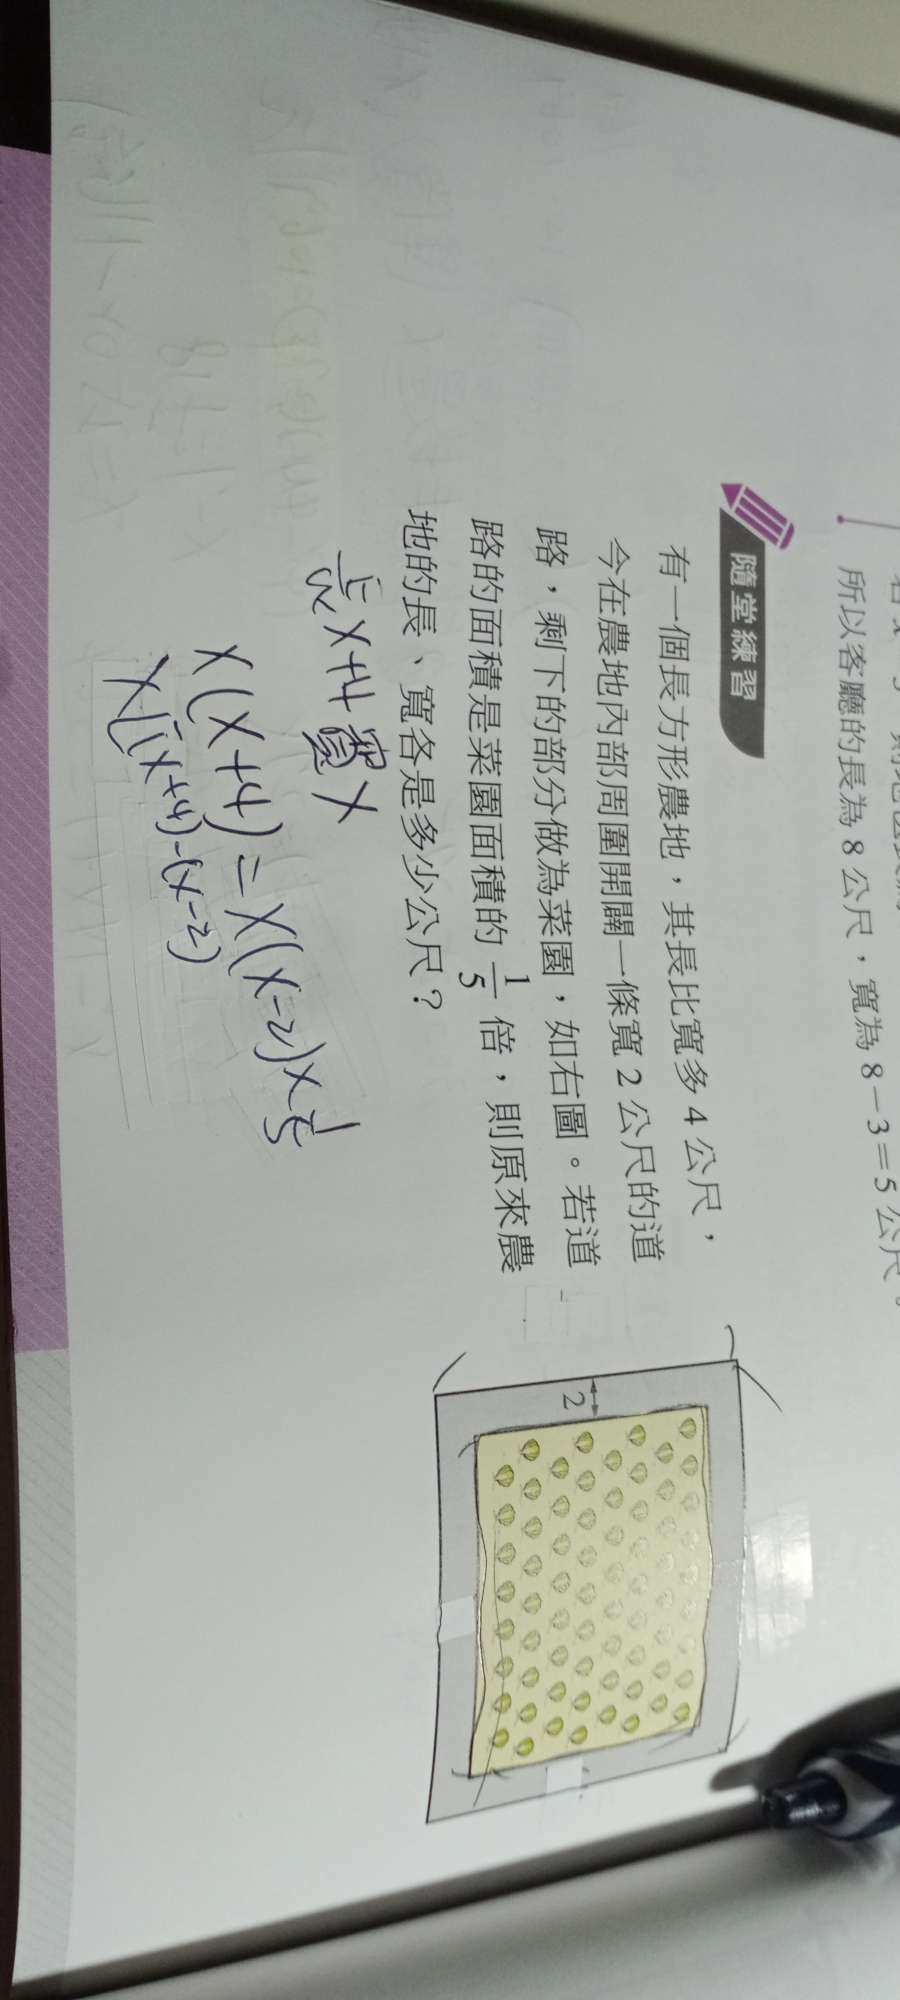 所以客廳的長為 8 公尺，寬為 8－3＝5 公尺。
隨堂練習
有一個長方形農地，其長比寬多 4 公尺，
今在農地內部周圍開闢一條寬 2 公尺的道
路，剩下的部分做為菜園，如右圖。若道
路的面積是菜園面積的 1/5 倍，則原來農
地的長、寬各是多少公尺？
2
長 x+4 寬 x
x(x+4)=x(x-2)x 1/5
x[(x+4)-(x-2)